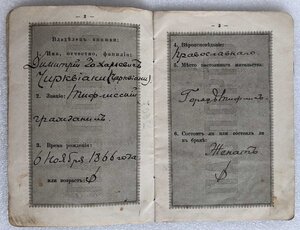 — 2 —
Владѣлецъ книжки:
1. Имя, отчество, фамилія:
Димитрій Захарьевичъ
Чирквіани (Чарквіани)
2. Званіе: Тифлисскій
гражданинъ
3. Время рожденія:
6 Ноября 1866 года
или возрастъ:
— 3 —
4. Вѣроисповѣданіе:
Православнаго
5. Мѣсто постояннаго жительства:
Городъ Тифлисъ
6. Состоитъ ли или состоялъ ли
въ бракѣ:
Женатъ